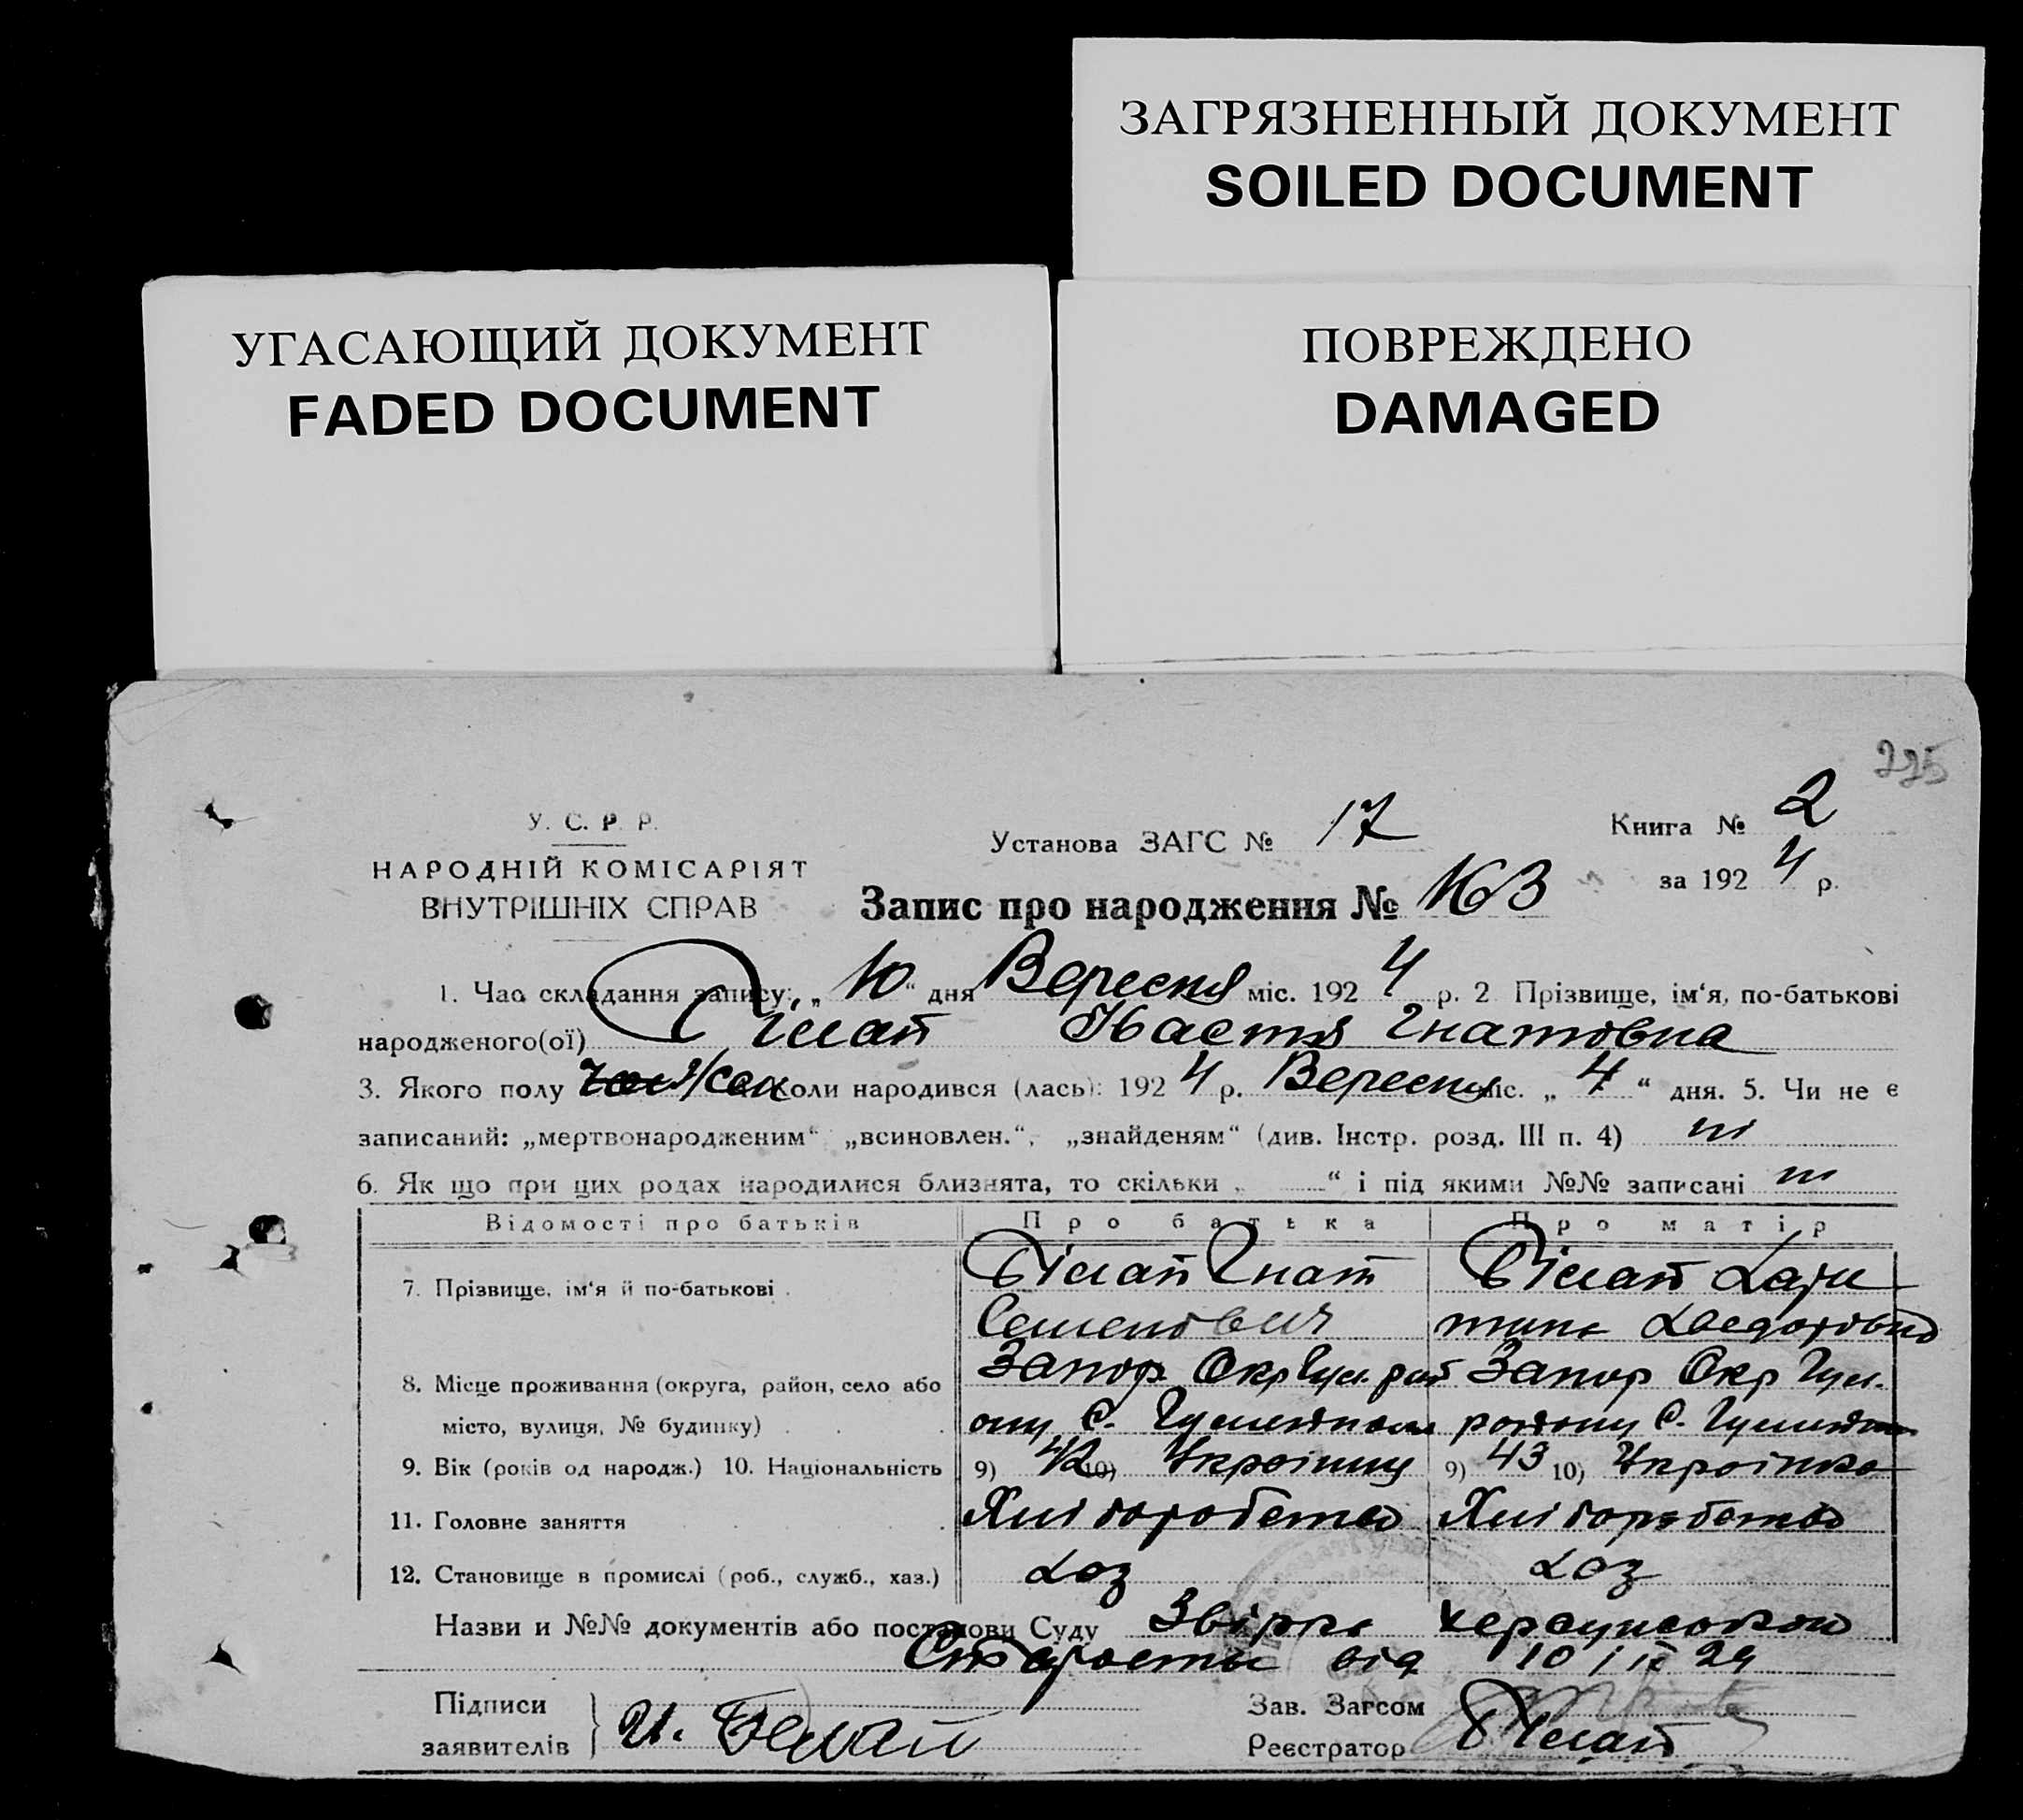 ЗАГРЯЗНЕННЫЙ ДОКУМЕНТ
SOILED DOCUMENT
УГАСАЮЩИЙ ДОКУМЕНТ
FADED DOCUMENT
ПОВРЕЖДЕНО
DAMAGED
225
У. С. Р. Р.
НАРОДНІЙ КОМІСАРІЯТ
ВНУТРІШНІХ СПРАВ
Установа ЗАГС № 17
Книга № 2
за 1924 р.
Запис про народження № 163
1. Час складання запису: „10“ дня Вересня міс. 1924 р. 2 Прізвище, ім‘я, по-батькові
народженого(ої) Білай Настя Гнатовна
3. Якого полу жен коли народився (лась): 1924 р. Вересня міс. „4“ дня. 5. Чи не є
записаний: „мертвонародженим“ „всиновлен.“, „знайденям“ (див. Інстр. розд. III п. 4) ні
6. Як що при цих родах народилися близнята, то скільки „ “ і під якими №№ записані ні
Відомості про батьків Про батька Про матір
7. Прізвище, ім‘я й по-батькові Білай Гнат Білай
Семенович
8. Місце проживання (округа, район, село або Запор Окр Гул. рай Запор Окр Гул.
місто, вулиця, № будинку) ону С. району С.
9. Вік (років од народж.) 10. Національність 9) 42 10) Українец 9) 43 10) Українка
11. Головне заняття Хліборобство Хліборобство
12. Становище в промислі (роб., служб., хаз.) хаз хаз
Назви и №№ документів або постанови Суду
від 10/IX 24
Підписи
заявителів И. Белай
Зав. Загсом
Реєстратор Білай